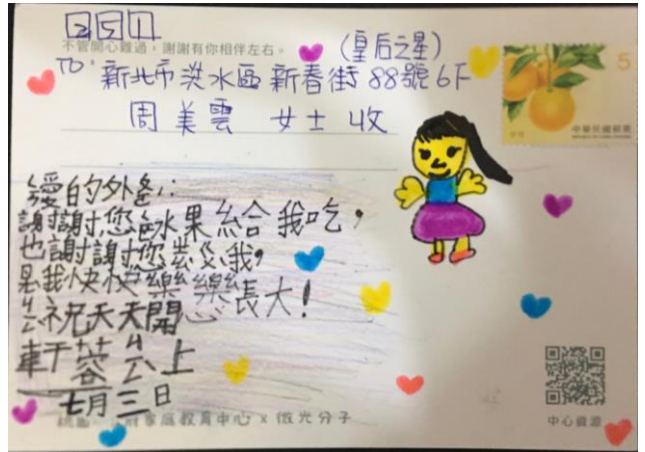 251
不管開心難過，謝謝有你相伴左右。
(皇后之星)
TO: 新北市淡水區新春街88號6F
周美雲 女士 收
5
中華民國郵票
愛的外婆：
謝謝您 水果給我吃，
也謝謝您 我，
我快快樂樂長大！
祝天天開心
軒蓉 上
七月三日
家庭教育中心 x 微光分子
中心資源